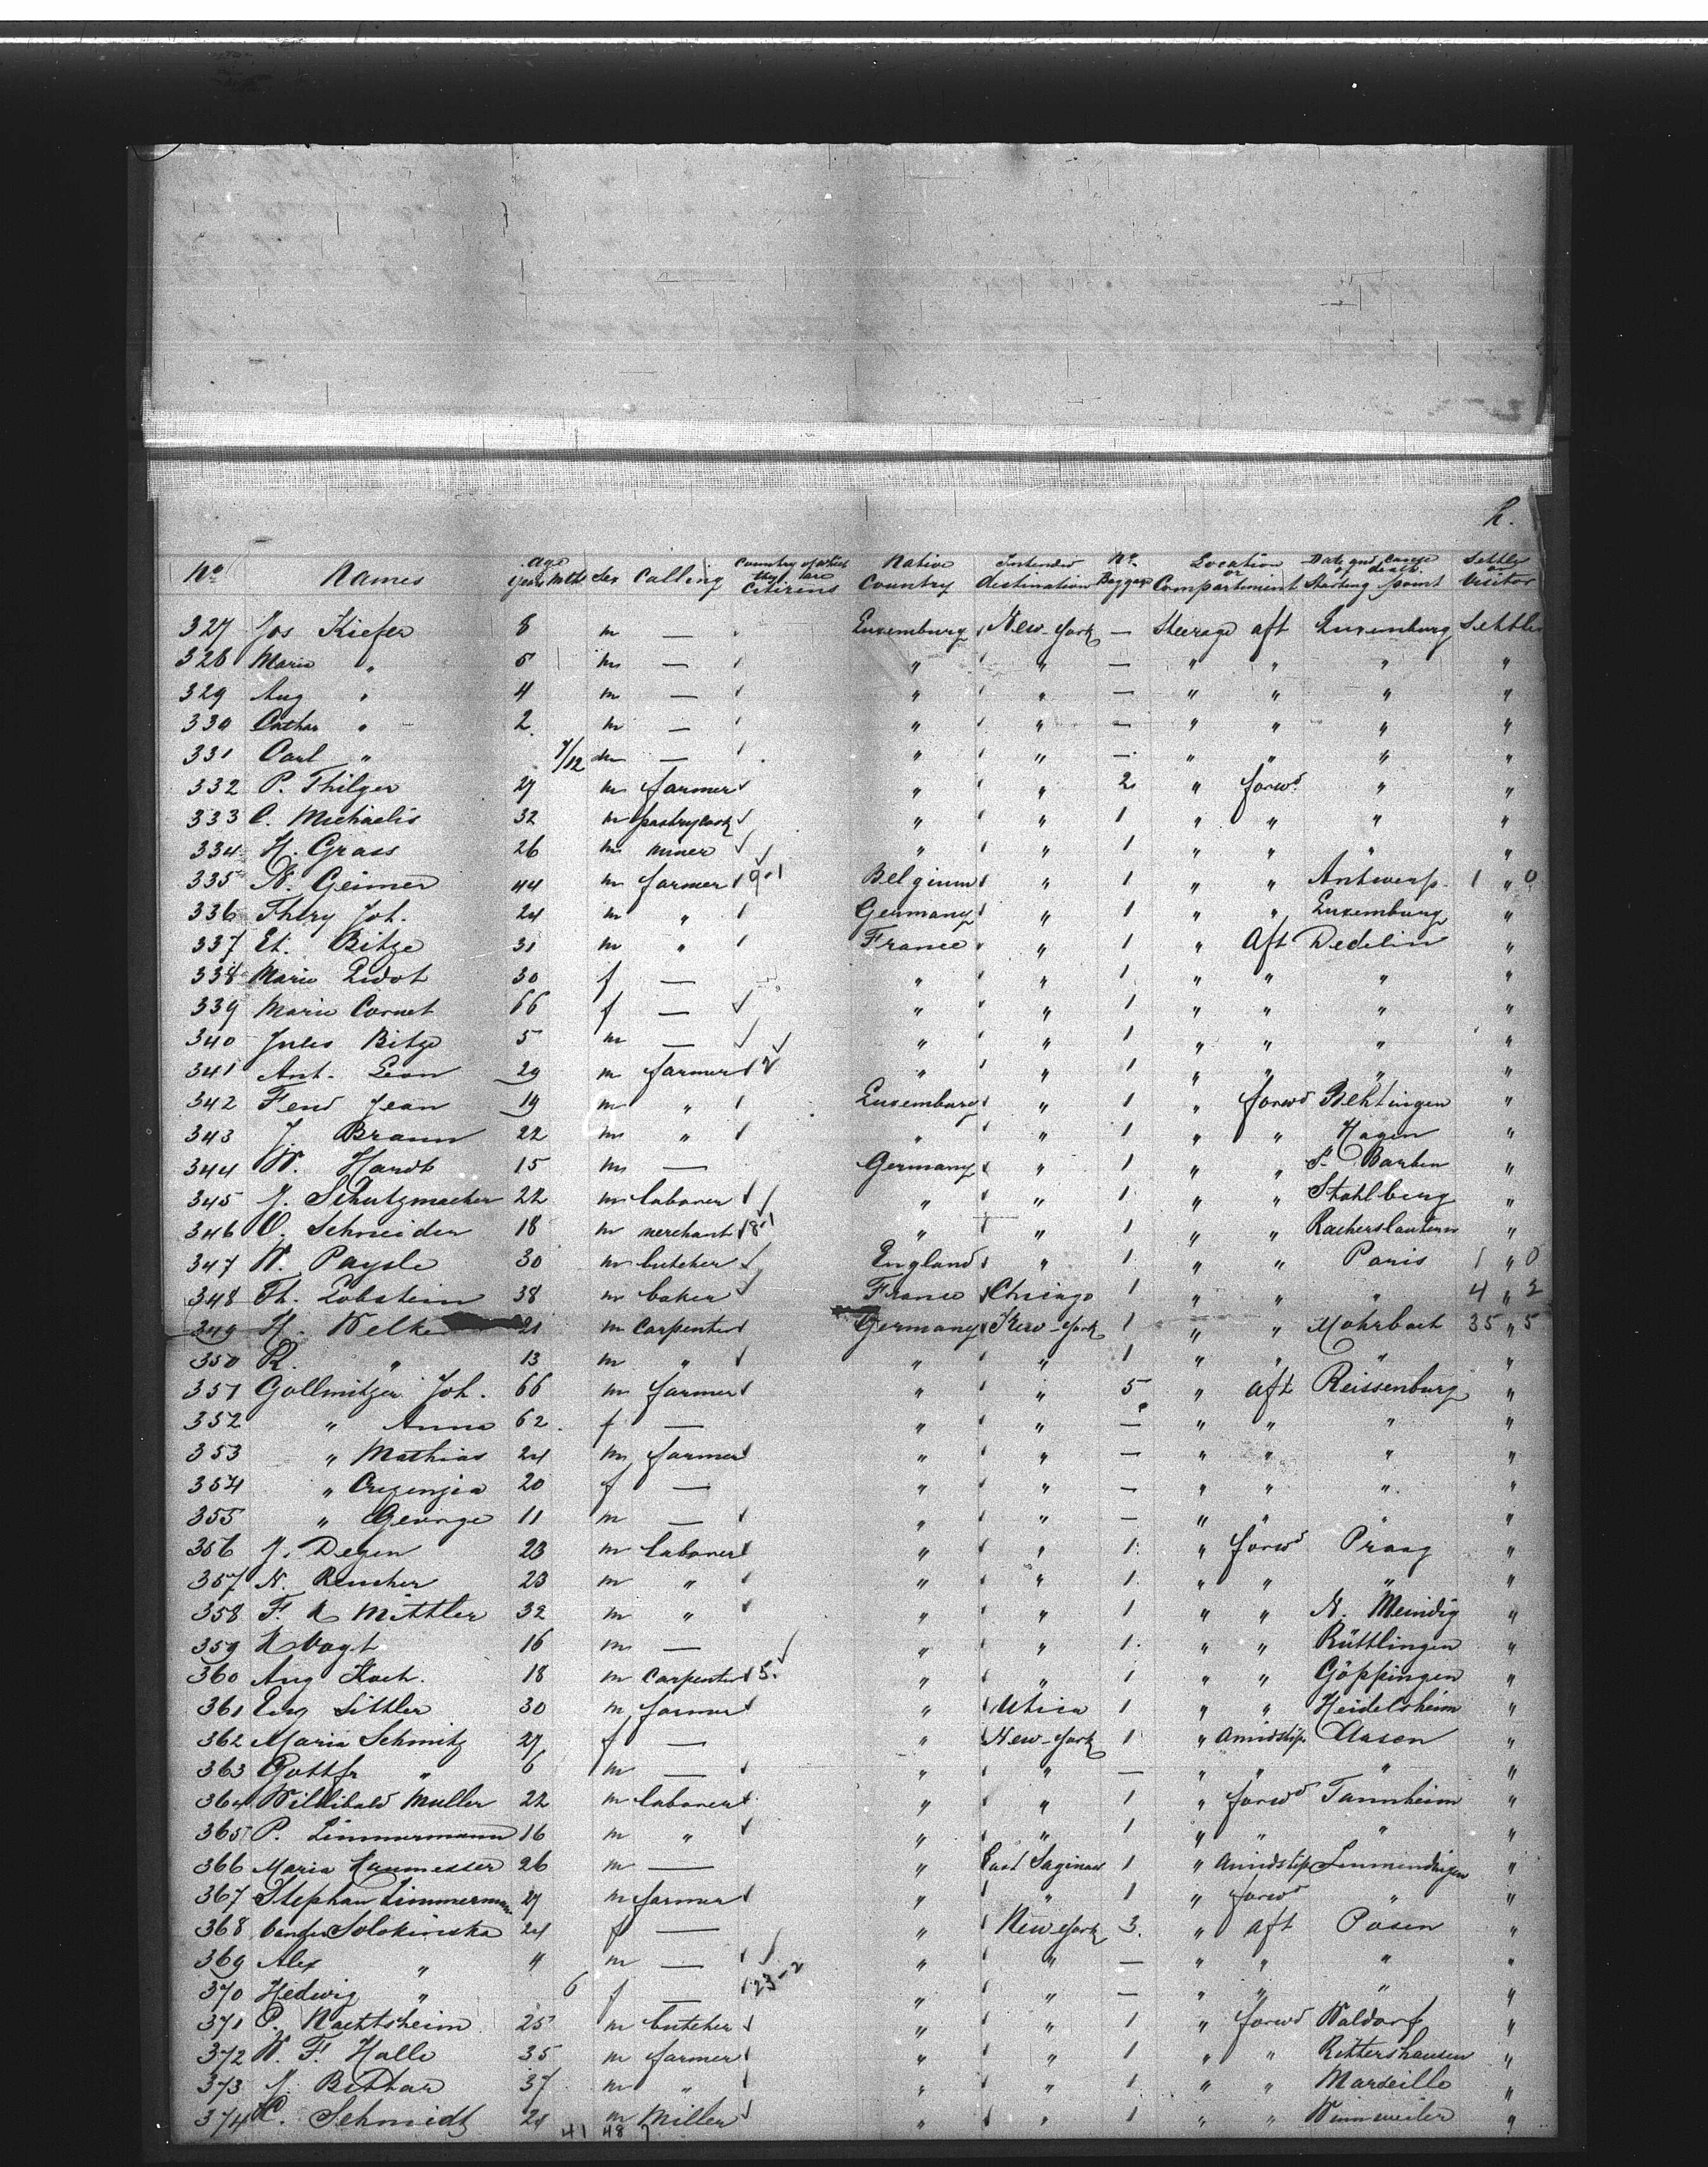 h.
No Names Age Years Mths Sex Calling Country of which they are Citizens Native Country Intended destination No. Baggage Location or Compartiment Date and Cause of death. Starting point Settler or Visitor
327 Jos Kiefer 8 m — Luxemburg New-York — Steerage aft Luxemburg Settler
328 Maria " 5 m — " " — " " " "
329 Aug " 4 m — " " — " " " "
330 Cathar " 2 m — " " — " " " "
331 Carl " 7/12 m — " " — " " " "
332 P. Thilger 27 m farmer " " 2 " forwd " "
333 C. Michaelis 32 m pastrycook " " 1 " " " "
334 H. Grass 26 m miner " " 1 " " " "
335 N. Geimer 44 m farmer 9-1 Belgium " 1 " " Antwerp. 1 " 0
336 Thery Joh. 24 m " Germany " 1 " " Luxemburg "
337 Et. Bitze 31 m " France " 1 " Aft Dedelin "
338 Marie Lidot 30 f — " " 1 " " " "
339 Marie Cornet 66 f — " " 1 " " " "
340 Jules Bitze 5 m — " " 1 " " " "
341 Ant. Leon 29 m farmer " " 1 " " " "
342 Fend Jean 19 m " Luxemburg " 1 " forwd Behtingen "
343 J. Braun 22 m " " " 1 " " Hagen "
344 W. Hardt 15 m — Germany " 1 " " St. Barben "
345 J. Schutzmacher 22 m laborer " " 1 " " Stahlberg "
346 O. Schneider 18 m merchant 8-1 " " 1 " " Racherslautern "
347 W. Paysle 30 m butcher England " 1 " " Paris 1 " 0
348 Th. Lobstein 38 m baker France Chicago 1 " " " 4 " 3
349 H. Welke 21 m Carpenter Germany New-York 1 " " Mohrbach 35 " 5
350 R. " 13 m " " " 1 " " " "
351 Gollmitzer Joh. 66 m farmer " " 5 " aft Reissenburg "
352 " Anna 62 f — " " — " " " "
353 " Mathias 24 m farmer " " — " " " "
354 " Crezenzia 20 f — " " — " " " "
355 " George 11 m — " " — " " " "
356 J. Degen 23 m laborer " " 1 " forwd Praag "
357 N. Rencher 23 m " " " 1 " " " "
358 F. K Mittler 32 m " " " 1 " " N. Mendig "
359 K Vogt 16 m — " " 1 " " Rüttlingen "
360 Aug Koch. 18 m Carpenter 5. " " 1 " " Göppingen "
361 Eug Sittler 30 m farmer " Utica 1 " " Heidelsheim "
362 Maria Schmitz 27 f — " New-York 1 " Amidships Aasen "
363 Gottfr " 6 m — " " — " " " "
364 Willibald Muller 22 m laborer " " 1 " forwd Tannheim "
365 P. Zimmermann 16 m " " " 1 " " " "
366 Maria Haumesser 26 m — " East Saginaw 1 " Amidship Emmendingen "
367 Stephan Zimmerman 27 m farmer " " 1 " forwd " "
368 Solokinska 24 f — " New York 3. " aft Posen "
369 Alex " " m — " " — " " " "
370 Hedwig " 6 f — 23-2 " " — " " " "
371 P. Nachtsheim 25 m butcher " " 1 " forwd Waldorf "
372 W. F. Halle 35 m farmer " " 1 " " Rittershausen "
373 J. Bettar 37 m " " " 1 " " Marseille "
374 H. Schmidt 24 m Miller " " 1 " " Winnweiler "
41 48 7